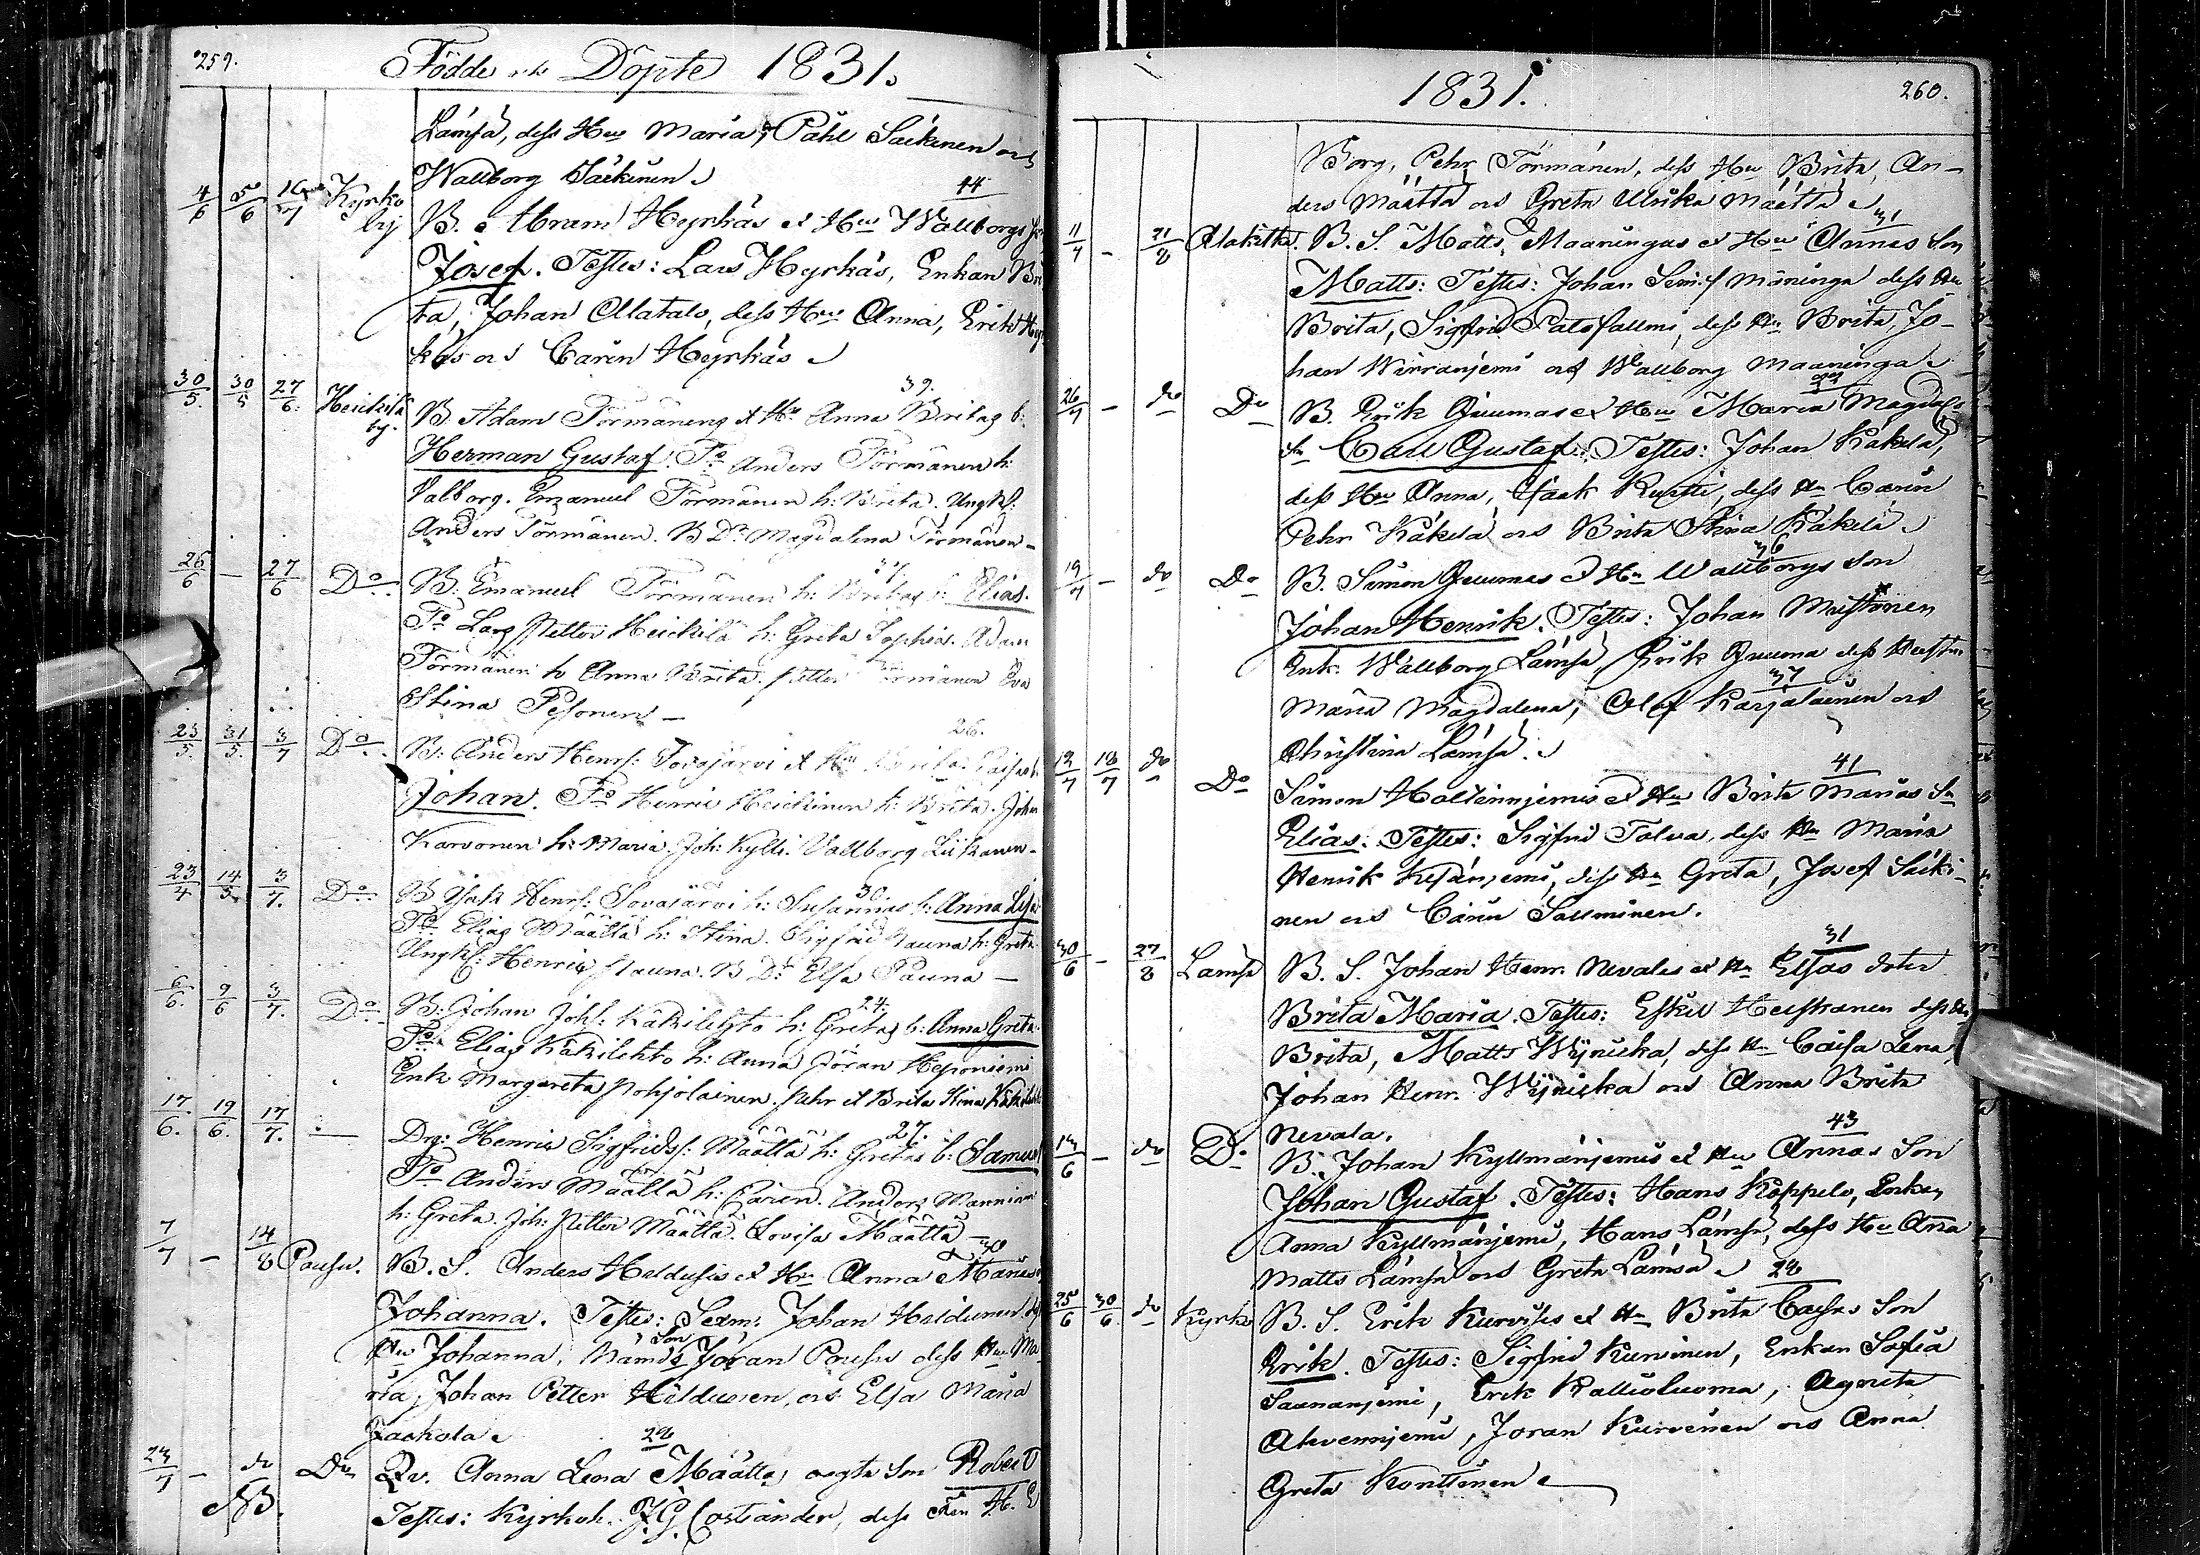 259.
Födde och Döpte 1831.
Lämsä, dess Hu Maria, Påhl Säckinen och
Wallborg Säkinen
44
4/6 5/6 Kyrko by B. Abram Hyrkäs et Hus Wallborgs
Josef. Testes: Lars Hyrkäs, Enkan Bri
ta, Johan Alatalo, dess Hu Anna, Erik Hyr
käs och Carin Hyrkäs
39.
30/5. 30/5 27/6. Heickilä by. B. Adam Törmäneng et Hu Anna Britas b:
Herman Gustaf. To Anders Törmänen h:
Valborg. Emanuel Törmänen h: Brita. Ungk:
Anders Törmänen. B Dr Magdalena Törmänen
26/6 – 27/6 Do B: Emanuel Törmänen h: Britas b: Elias.
To Lars Petter Heickilä h: Greta Sophia. Adam
Törmänen h Anna Brita. Petter Törmänen Eva
Stina Pesonen –
26.
25/5. 31/5. 3/7 Do B: Anders Henrs: Sovajärvi et Hu
Johan. To Henric Heickinen h: Brita. Johan
Karvonen h: Maria. Joh: Kylli. Vallborg Liikanen
30.
23/4 14/5. 3/7. Do B Isak Henrs: Sovajärvi h: Susannas b: Anna Lisa
To Elias Määttä h: Stina. Sigfrid Pauna h: Greta.
Ungk: Henric Pauna. B Dr Elsa Pauna –
24.
6/6. 9/6 3/7. Do B: Johan Johs: Käkilehto h: Gretas b: Anna Greta.
To Elias Käkilehto h: Anna Jöran Heponiemi
Enk Margareta Pohjolainen. Pehr et Brita Stina
27.
17/6. 19/6. 17/7. Drg: Henric Sigfrids: Määttä h: Gretas b: Samuel
To Anders Määttä h: Caren. Anders
h: Greta. Joh: Petter Määttä. Lovisa Määttä –
30
7/7 – 14/8 Pousu. B. S. Anders Heldusis et Hu Anna Marias
Johanna. Testes: Sexm: Johan Heldunen
Hu Johanna, Nämds Jöran Pousu dess Hu Ma
ria, Johan Petter Heldunen, och Elsa Maria
Jaakola
28
24/7 – do Do Qv. Anna Lena Määttäs oegta Son Robert
NB. Testes: Kyrkoh. J.G. Costiander, dess
1831.
260.
Borg, Pehr Törmänen, dess Hu Brita, An-
ders Määttä och Greta Ulrika Määttä
31
11/7 – 21/8 Alakitka. B. S. Matts Maaningas et Hu Annas Son
Matts: Testes: Johan Maninga dess Hu
Brita, Sigfrid Patosallmi, dess Hu Brita, Jo-
han Wirranjemi och Wallborg Maaninga
26/7 – do Do B. Erik Juumas et Hu Maria Magdal:
Sn Carl Gustaf: Testes: Johan Käkelä,
dess Hu Anna, Isaak, dess Hu Carin
Pehr Käkelä och Brita Stina Käkelä
36
19/7 – do Do B. Simon Juumas et Hu Wallborgs Son
Johan Henrik. Testes: Johan Mustonen
Enk. Wallborg Lämsä, Erik Juuma dess Hustru
37
Maria Magdalena, Olof Karjalainen och
Christina Lämsä.
41
12/7 18/7 do Do Simon Holtinnjemis et Hu Brita Marias Sn
Elias: Testes: Sigfrid Tolva, dess Hu Maria
Henrik Kesänjemi, dess Hu Greta, Josef Säki-
nen och Carin Sallminen.
31
30/6 – 27/8 Lämsä B. S. Johan Henr. Nevalas et Hu Elsas doter
Brita Maria. Testes: Eskil Heiskanen dess Hu
Brita, Matts Wÿnicka, dess Hu Caisa Lena,
Johan Henr. Wÿnicka och Anna Brita
Nevala.
43
14/6 – do Do B. Johan Kyllmänjemis et Hu Annas Son
Johan Gustaf. Testes: Hans Käppelo, Enkan
Anna Kyllmänjemi, Hans Lämsä, dess Hu Anna
Matts Lämsä och Greta Lämsä
28
25/6 30/6. do Kyrko B. S. Erik Kurvises et Hu Brita Caisas Son
Erik. Testes: Sigfrid Kurvinen, Enkan Sofia
Saunanjemi, Erik Kallioluoma, Agneta
Ahvennjemi, Jöran Kurvinen och Anna
Greta Konttinen